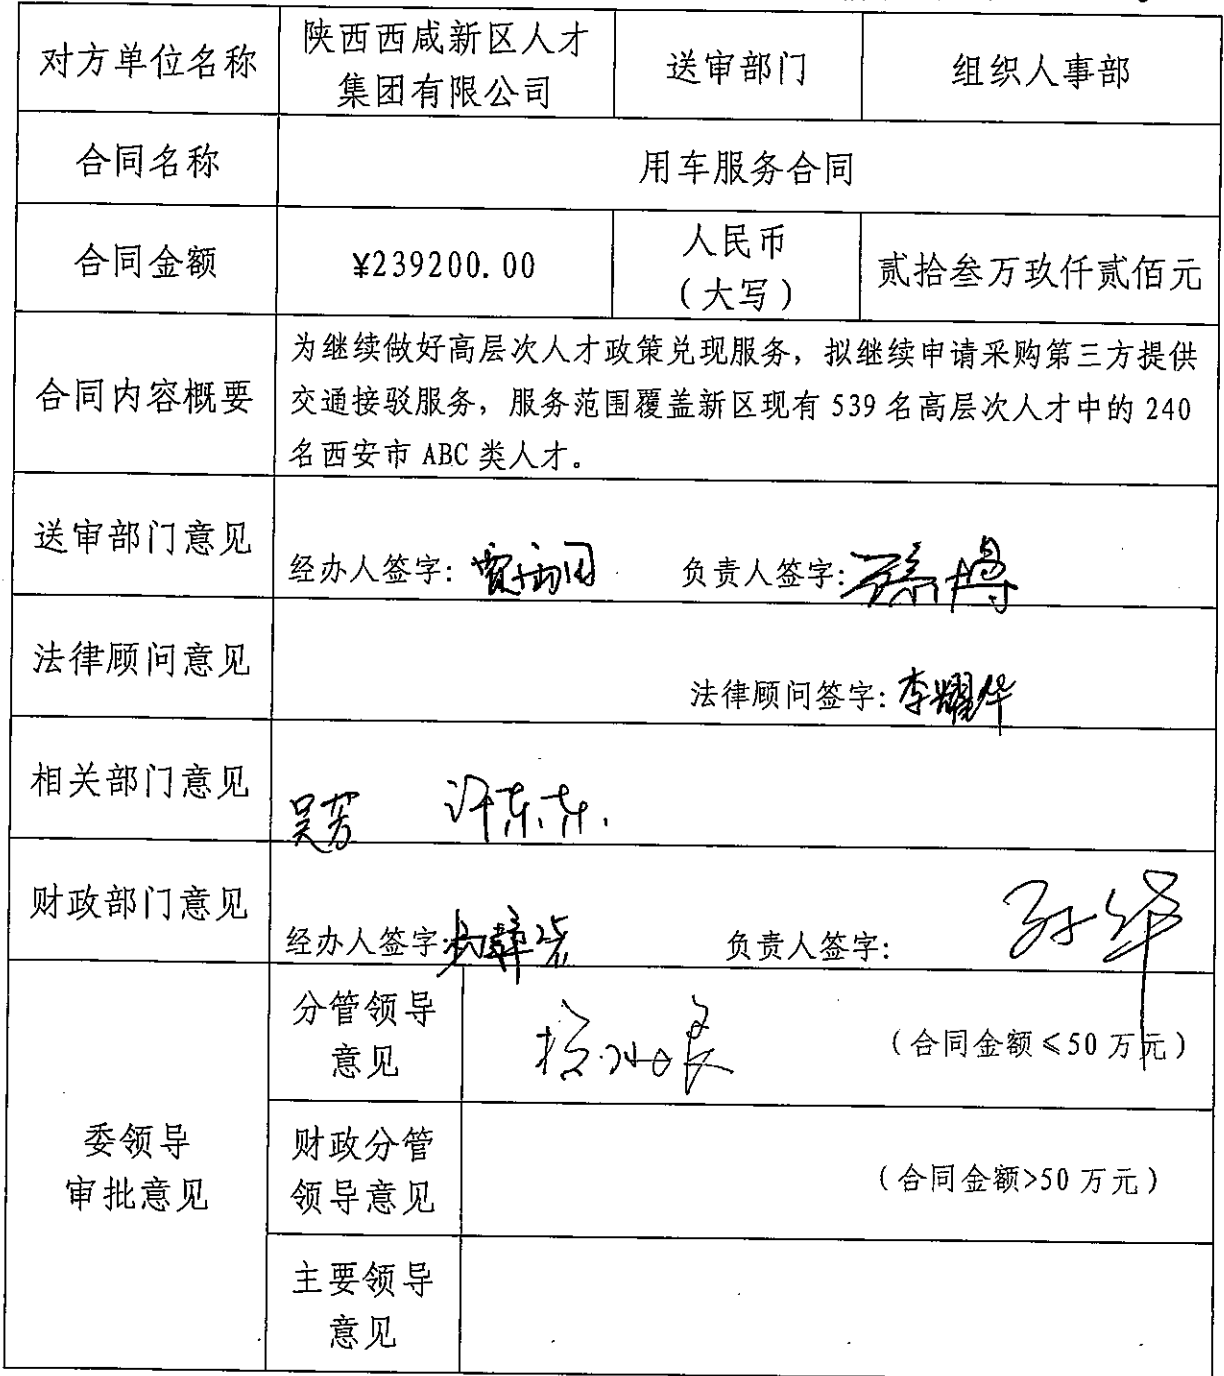 对方单位名称
陕西西咸新区人才
集团有限公司
送审部门
组织人事部
合同名称
用车服务合同
合同金额
¥239200.00
人民币
(大写)
贰拾叁万玖仟贰佰元
合同内容概要
为继续做好高层次人才政策兑现服务,拟继续申请采购第三方提供
交通接驳服务,服务范围覆盖新区现有539名高层次人才中的240
名西安市ABC类人才。
送审部门意见
经办人签字:
负责人签字:
法律顾问意见
法律顾问签字:李耀华
相关部门意见
吴芳 许东东.
财政部门意见
经办人签字:
负责人签字:孙华
委领导
审批意见
分管领导
意见
(合同金额≤50万元)
财政分管
领导意见
(合同金额>50万元)
主要领导
意见